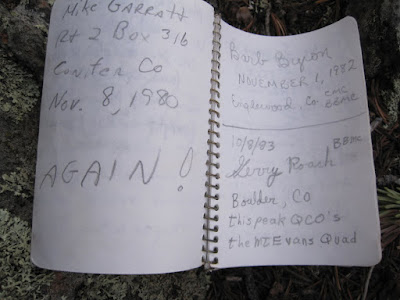 Mike GARRATT
Rt 2 Box 316
Conifer Co
Nov. 8, 1980
AGAIN!
Barb Lyon
NOVEMBER 1, 1982
Englewood, Co. CMC
BBMC
10/8/83 BBMC
Gerry Roach
Boulder, CO
this peak QCO's
the MTEvans Quad